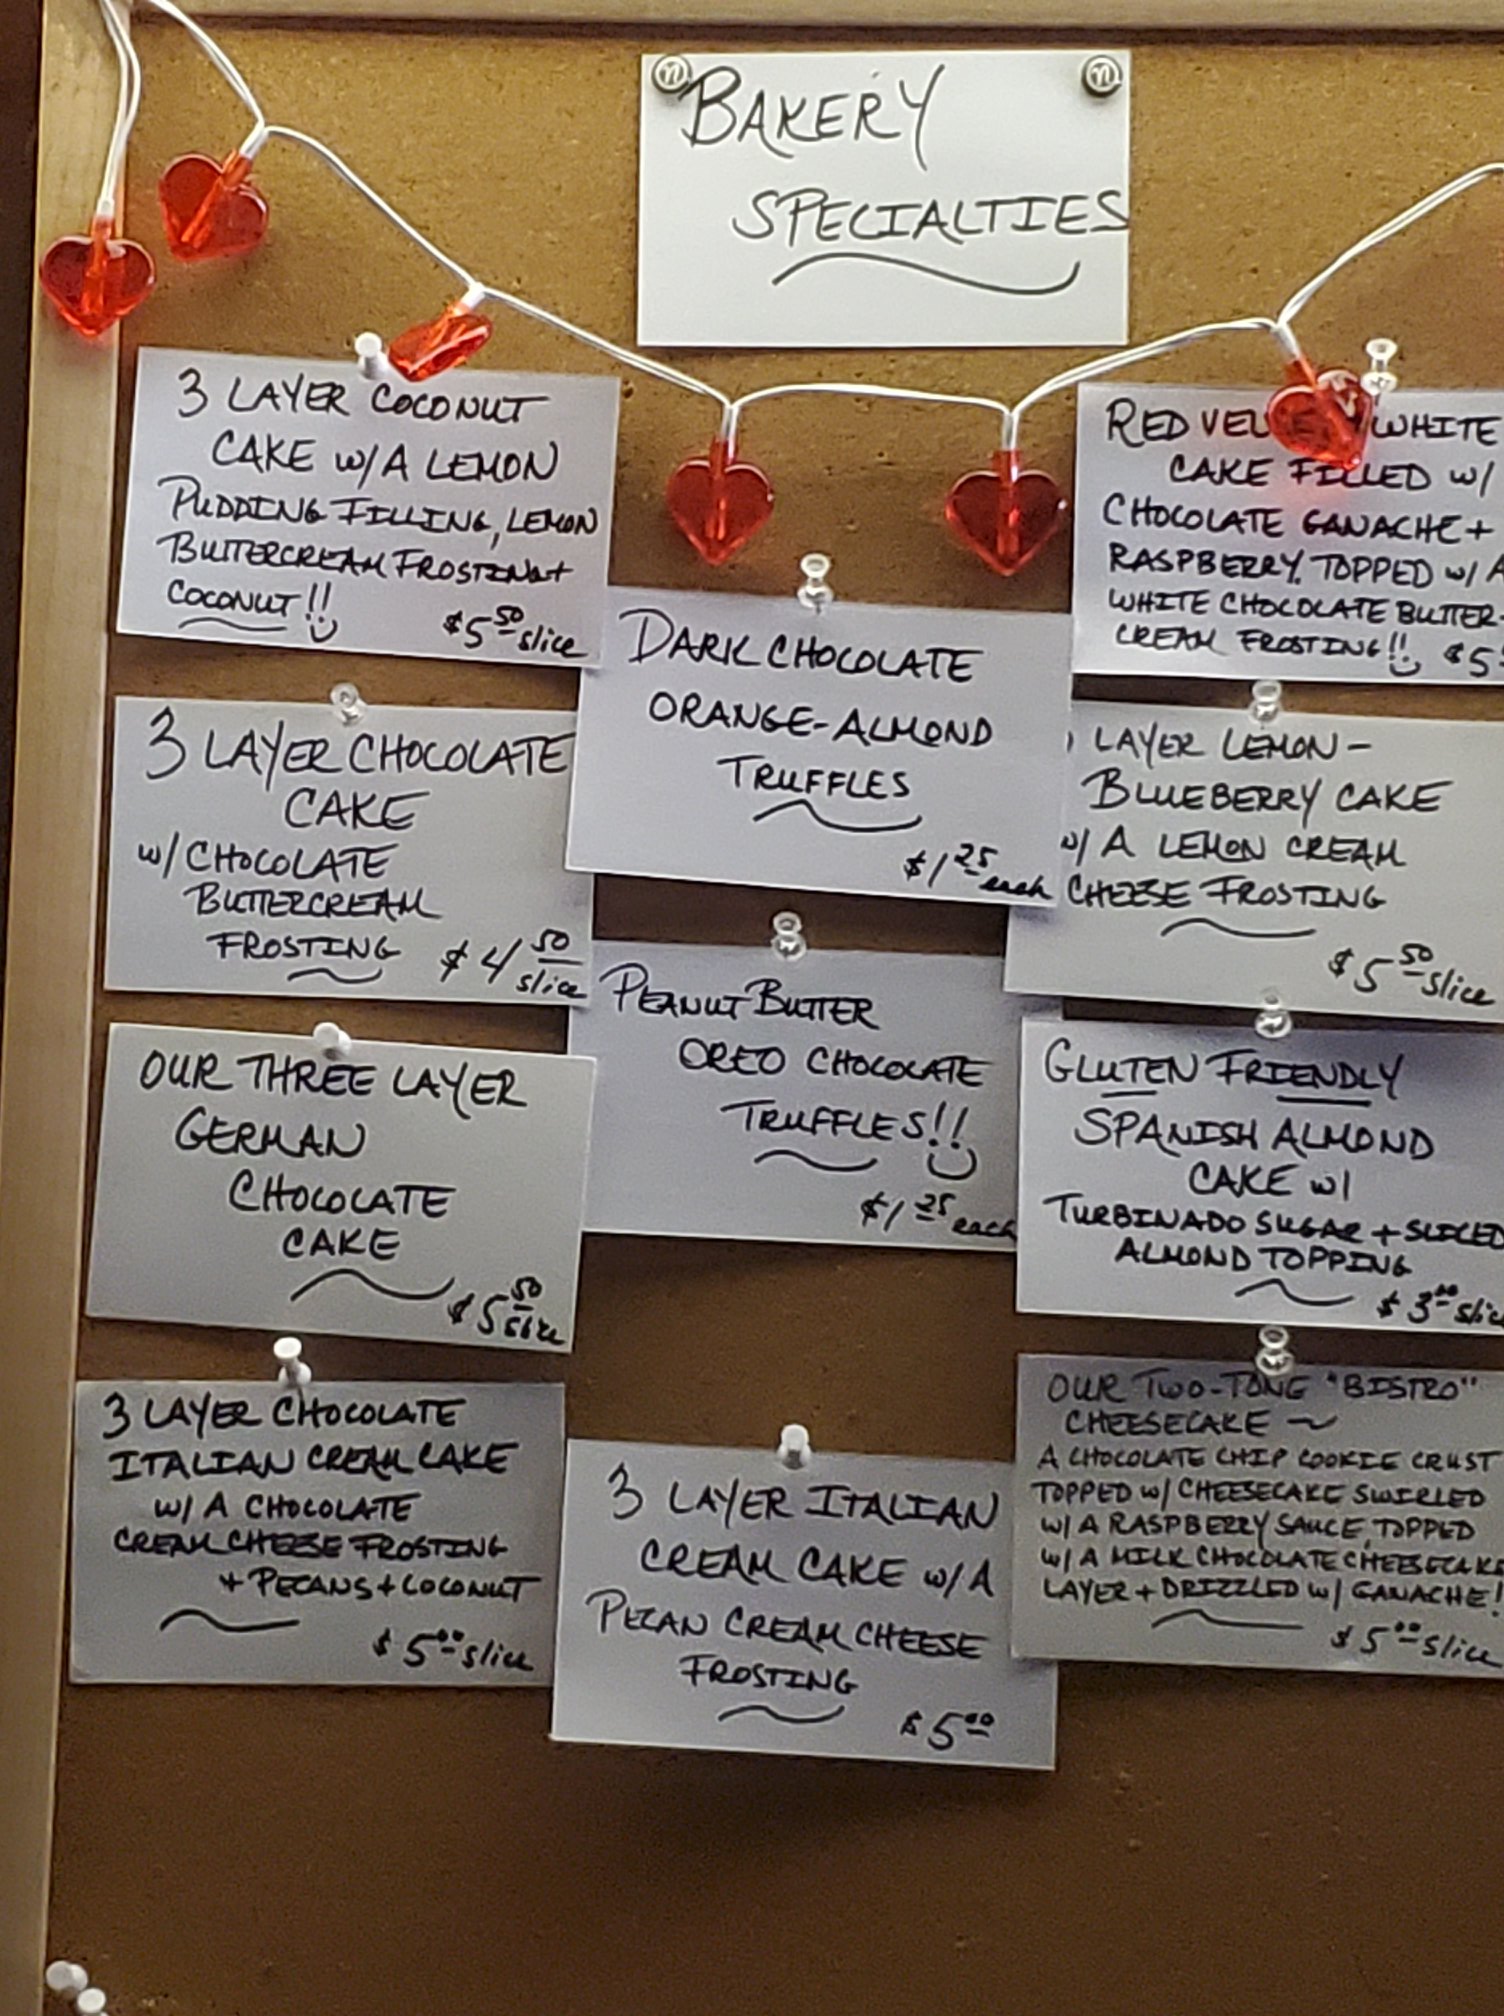 BAKERY
SPECIALTIES
3 LAYER COCONUT
CAKE W/A LEMON
PUDDING FILLING, LEMON
BUTTERCREAM FROSTING +
COCONUT!!
$5.50 slice
3 LAYER CHOCOLATE
CAKE
W/ CHOCOLATE
BUTTERCREAM
FROSTING
$4.50 slice
OUR THREE LAYER
GERMAN
CHOCOLATE
CAKE
$5.50 slice
3 LAYER CHOCOLATE
ITALIAN CREAM CAKE
W/ A CHOCOLATE
CREAM CHEESE FROSTING
+ PECANS + COCONUT
$5.00 slice
DARK CHOCOLATE
ORANGE-ALMOND
TRUFFLES
$1.25 each
PEANUT BUTTER
OREO CHOCOLATE
TRUFFLES!!
$1.25 each
3 LAYER ITALIAN
CREAM CAKE W/A
PECAN CREAM CHEESE
FROSTING
$5.00
RED WHITE
CAKE FILLED W/
CHOCOLATE GANACHE +
RASPBERRY. TOPPED W/ A
WHITE CHOCOLATE BUTTER-
CREAM FROSTING!!
$5
LAYER LEMON-
BLUEBERRY CAKE
W/ A LEMON CREAM
CHEESE FROSTING
$5.50 slice
GLUTEN FRIENDLY
SPANISH ALMOND
CAKE W/
TURBINADO SUGAR + SLICED
ALMOND TOPPING
$3.00 slice
OUR TWO-TONE "BISTRO"
CHEESECAKE ~
A CHOCOLATE CHIP COOKIE CRUST
TOPPED W/ CHEESECAKE SWIRLED
W/A RASPBERRY SAUCE, TOPPED
W/A MILK CHOCOLATE CHEESECAKE
LAYER + DRIZZLED W/ GANACHE!
$5.00 slice